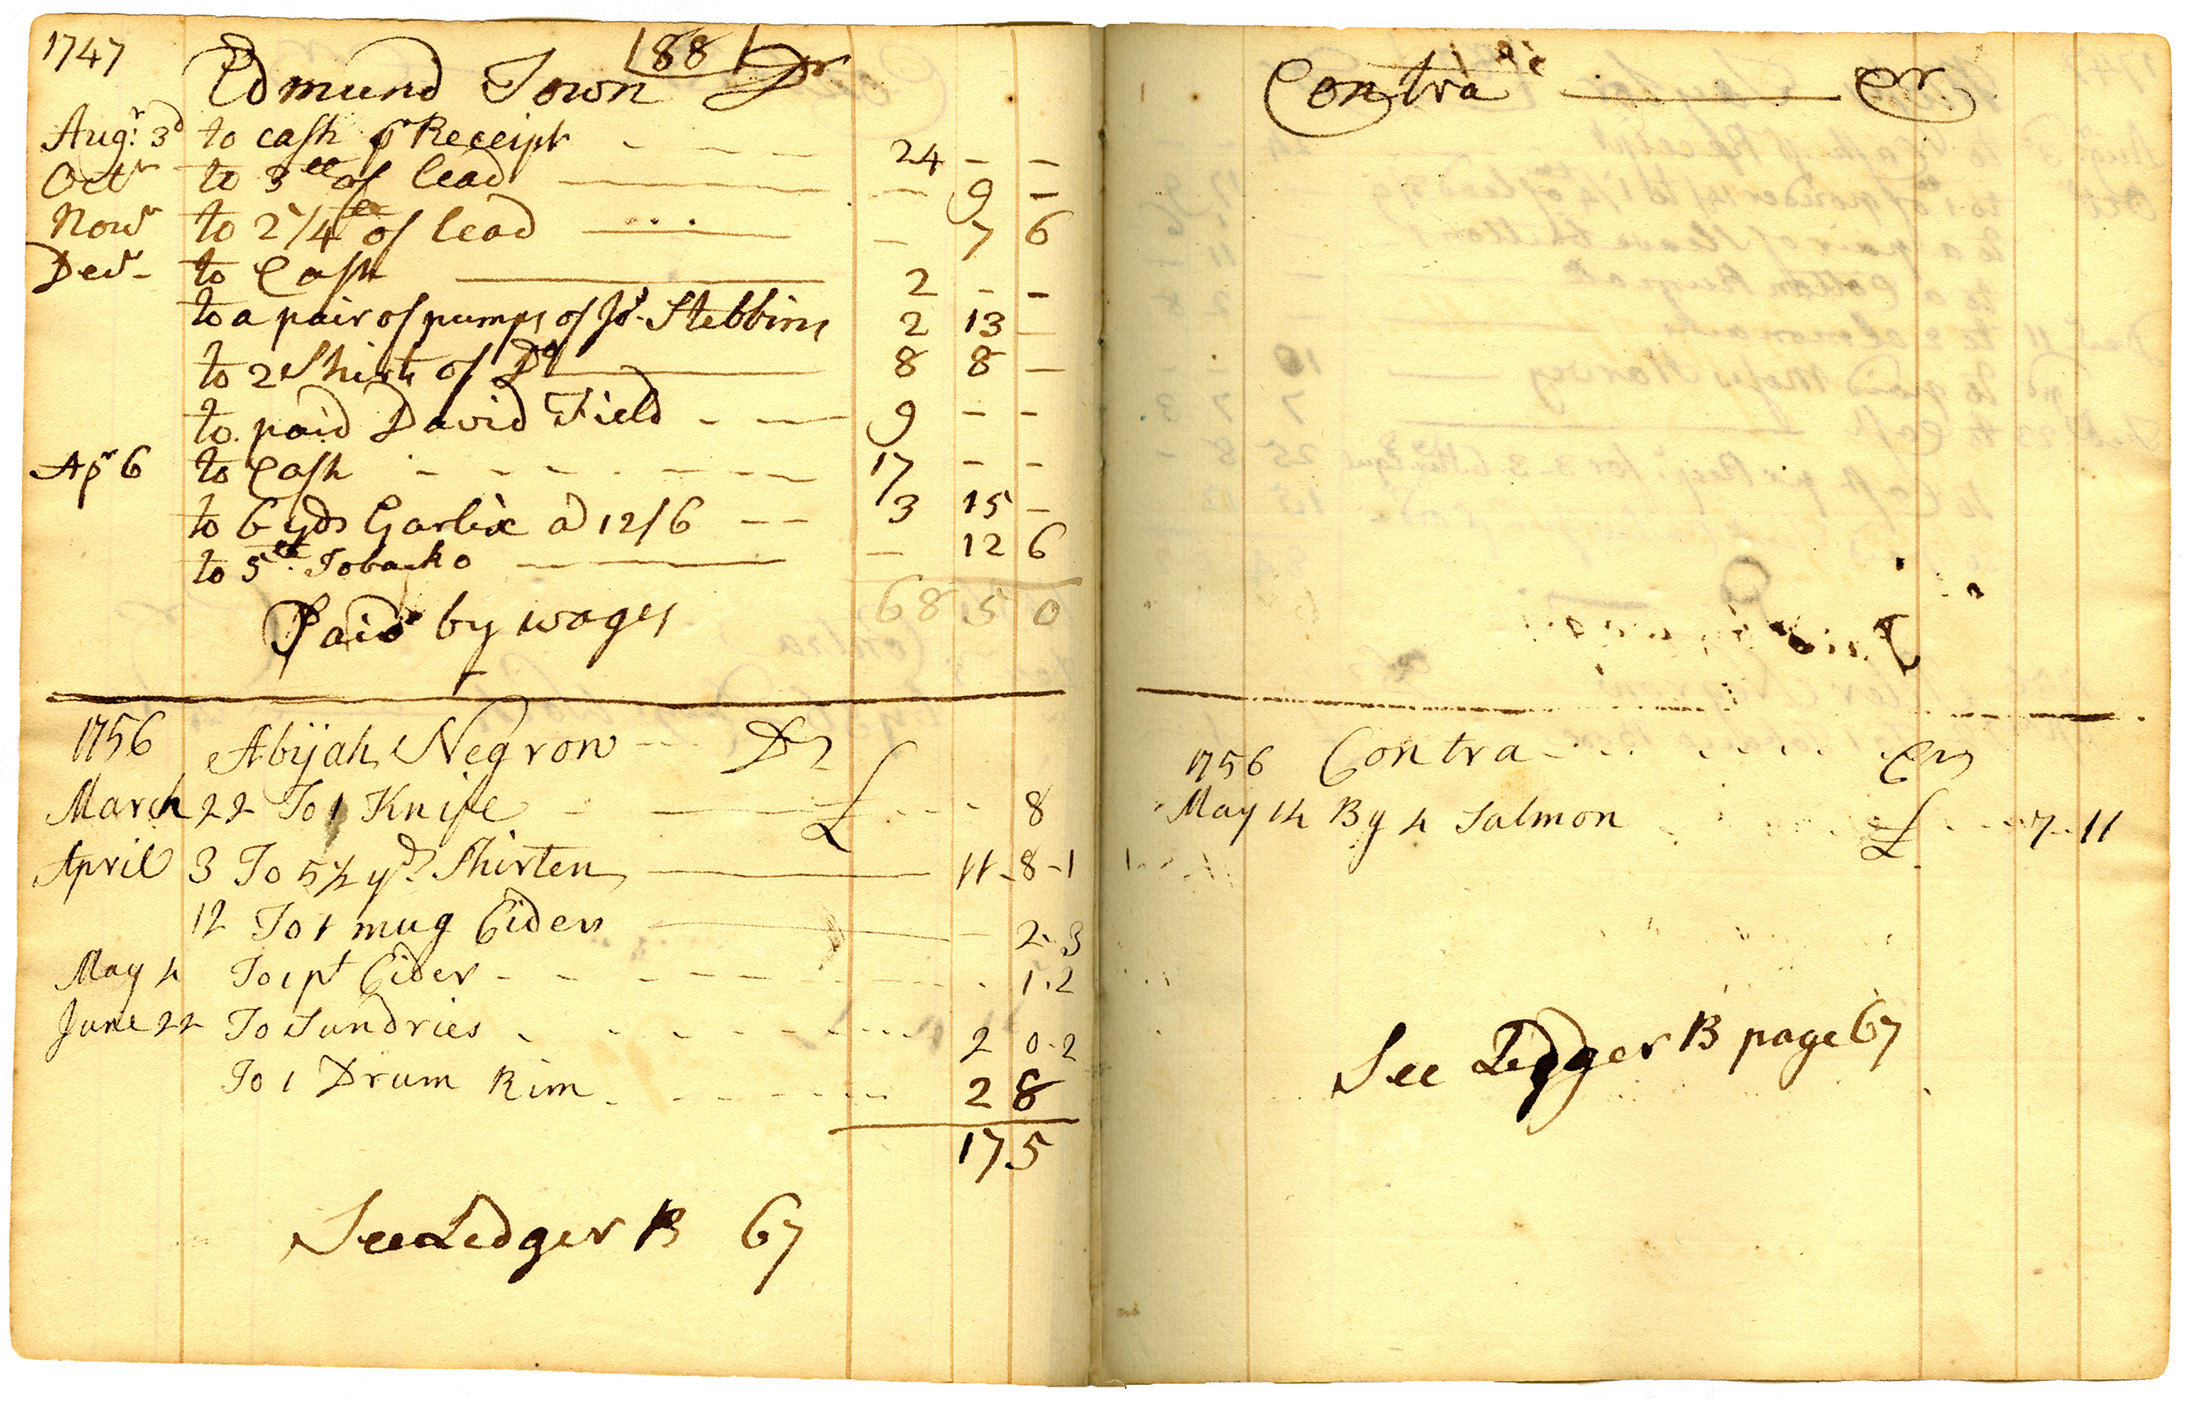 1747
88
Edmund Town Dr
Augt. 3d to cash pr Receipt - - - 24 - -
Octr to 3 ll of lead - 9 -
Novr to 2 1/4 ll of lead - 7 6
Decr to Cash 2 - -
to a pair of pumps of Jos. Stebbins 2 13 -
to 2 Shirts of Do 8 8 -
to paid David Field - - 9 - -
Apr 6 to Cash - - - - 17 - -
to 6 yds Garlix a 12/6 - - 3 15 -
to 5 ll Tobacko - 12 6
68 5 0
Paid by wages
1756 Abijah Negron Dr
March 22 To 1 Knife £ 8
April 3 To 5 1/2 yds Shirten 11-8-1
12 To 1 mug Cider 2-3
May 4 To 1 pt Cider 1.2
June 22 To Sundries 2 0-2
To 1 Drum Rim 2 8
17 5
See Ledger B 67
Contra Cr
1756 Contra Cr
May 14 By 4 Salmon £ 7-11
See Ledger B page 67